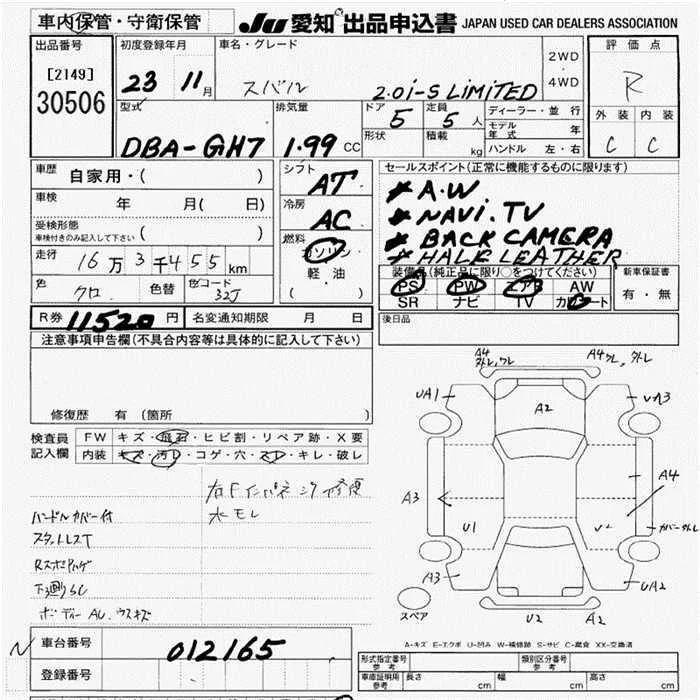 車内保管・守衛保管
JU 愛知 出品申込書 JAPAN USED CAR DEALERS ASSOCIATION
出品番号
[2149]
30506
初度登録年月
23 11月
車名・グレード
スバル 2.0i-S LiMiTED
2WD
4WD
評価点
R
外装 内装
C C
型式
DBA-GH7
排気量
1.99 CC
ドア
5
形状
定員
5 人
積載
kg
ディーラー・並行
モデル年式 年
ハンドル 左・右
車歴
自家用・( )
車検
年 月( 日)
受検形態
車検付きのみ記入して下さい ( )
走行
16万3千455km
色
クロ
色替
色コード
32J
シフト
AT
冷房
AC
燃料
ガソリン
軽・油
( )
セールスポイント(正常に機能するものに限ります)
★ A・W
★ NAVi.TV
★ BACK CAMERA
★ HALF LEATHER
装備品(純正品に限り○をつけてください)
PS PW エアB AW
SR ナビ TV カワシート
新車保証書
有・無
R券 11520円
名変通知期限 月 日
後日品
注意事項申告欄(不具合内容等は具体的に記入して下さい)
修復歴 有(箇所 )
検査員記入欄
FW キズ・飛石・ヒビ割・リペア跡・X要
内装 キズ・汚レ・コゲ・穴・スレ・キレ・破レ
右Fインパネ
修復
水モレ
ハンドルカバー付
スタットレスT
下廻りSC
ボディーAU.ウスキズ
A4
A4
UA1
A2
A3
A4
U1
A3
UA2
U2
A2
スペア
A-キズ E-エクボ U-凹み W-補修跡 S-サビ C-腐食 XX-交換済
車台番号
012165
登録番号
形式指定番号参考
類別区分番号参考
車庫証明用参考
長さ cm
幅 cm
高さ cm